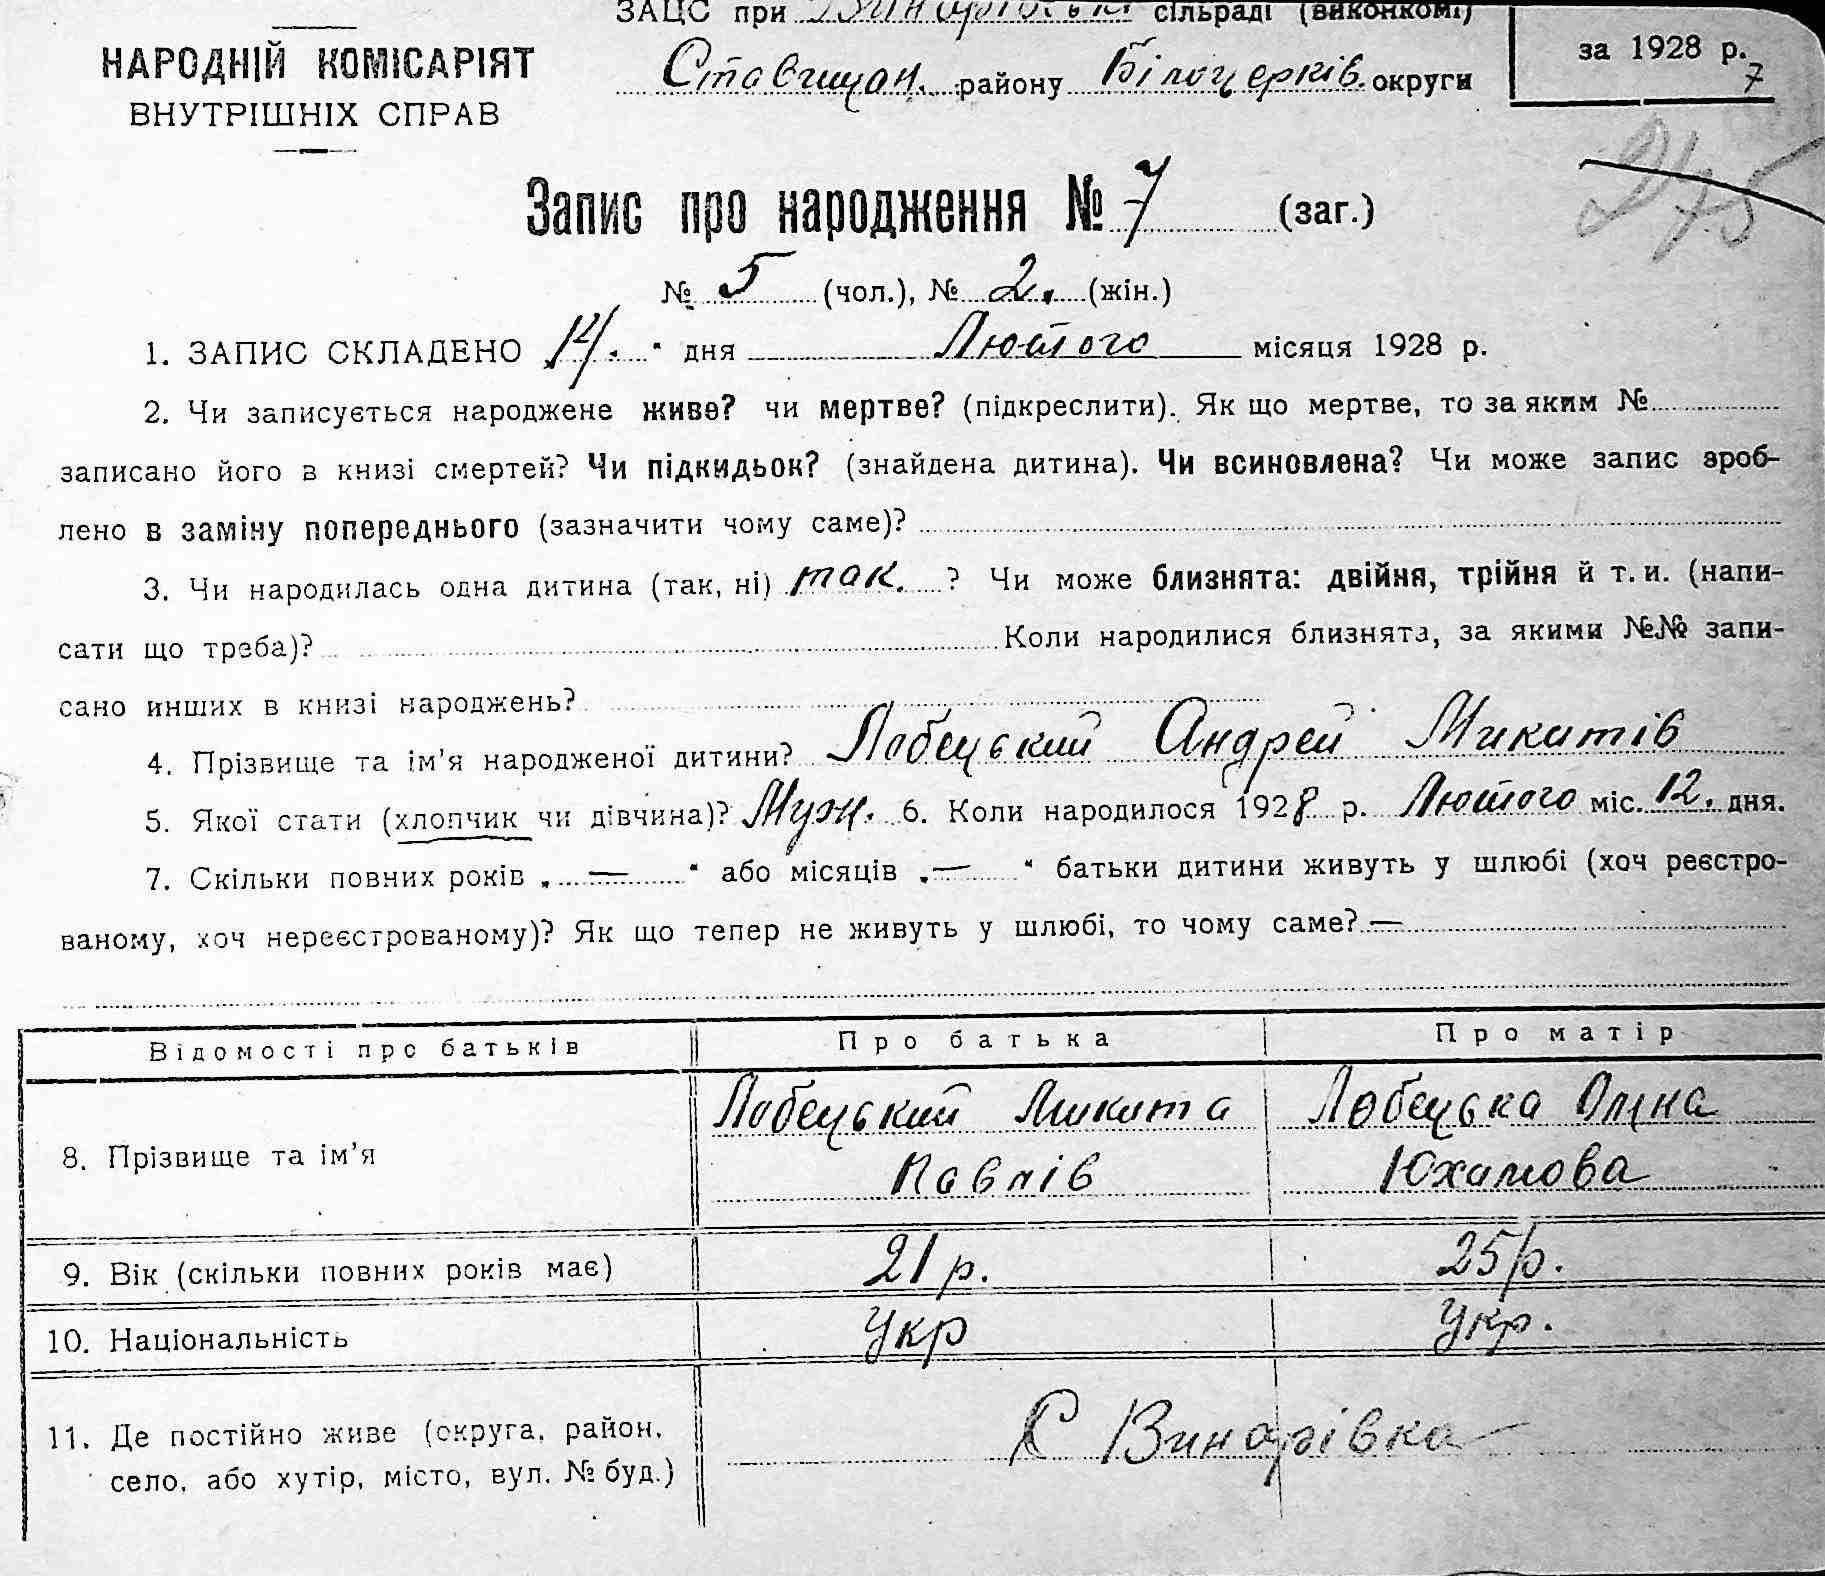 ЗАЦС при сільраді (виконкомі)
НАРОДНІЙ КОМІСАРІЯТ
ВНУТРІШНІХ СПРАВ
Ставищан. району Білоцерків. округи
за 1928 р.
7
Запис про народження № 7 (заг.)
275
№ 5 (чол.), № 2. (жін.)
1. ЗАПИС СКЛАДЕНО " дня Лютого місяця 1928 р.
2. Чи записується народжене живе? чи мертве? (підкреслити). Як що мертве, то за яким №
записано його в книзі смертей? Чи підкидьок? (знайдена дитина). Чи всиновлена? Чи може запис зроб-
лено в заміну попереднього (зазначити чому саме)?
3. Чи народилась одна дитина (так, ні) так. ? Чи може близнята: двійня, трійня й т. и. (напи-
сати що треба)? Коли народилися близнята, за якими №№ запи-
сано инших в книзі народжень?
4. Прізвище та ім'я народженої дитини? Лобецький Андрей Микитів
5. Якої стати (хлопчик чи дівчина)? Муж. 6. Коли народилося 1928 р. Лютого міс. 12. дня.
7. Скільки повних років „ — " або місяців „ — " батьки дитини живуть у шлюбі (хоч реєстро-
ваному, хоч нереєстрованому)? Як що тепер не живуть у шлюбі, то чому саме? —
Відомості про батьків Про батька Про матір
8. Прізвище та ім'я
Лобецький Микита Лобецька
Павлів Юхимова
9. Вік (скільки повних років має) 21 р. 25 р.
10. Національність Укр Укр.
11. Де постійно живе (округа, район,
село, або хутір, місто, вул. № буд.)
С Винарівка